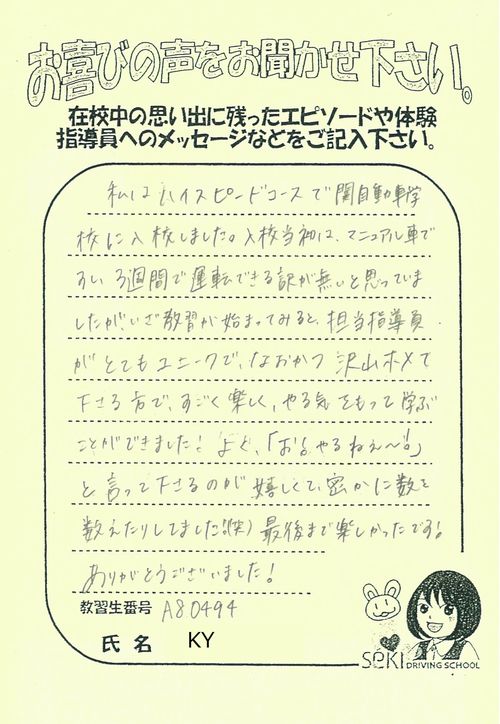 お喜びの声をお聞かせ下さい。
在校中の思い出に残ったエピソードや体験
指導員へのメッセージなどをご記入下さい。
私はハイスピードコースで関自動車学
校に入校しました。入校当初は、マニュアル車で
すし、3週間で運転できる訳が無いと思っていま
したが、いざ教習が始まってみると、担当指導員
がとてもユニークで、なおかつ沢山ホメて
下さる方で、すごく楽しく、やる気をもって学ぶ
ことができました!よく、「おぉやるねぇ〜!」
と言って下さるのが嬉しくて、密かに数を
数えたりしてました!(笑)最後まで楽しかったです!
ありがとうございました!
教習生番号 A80494
氏名 KY
SEKI DRIVING SCHOOL